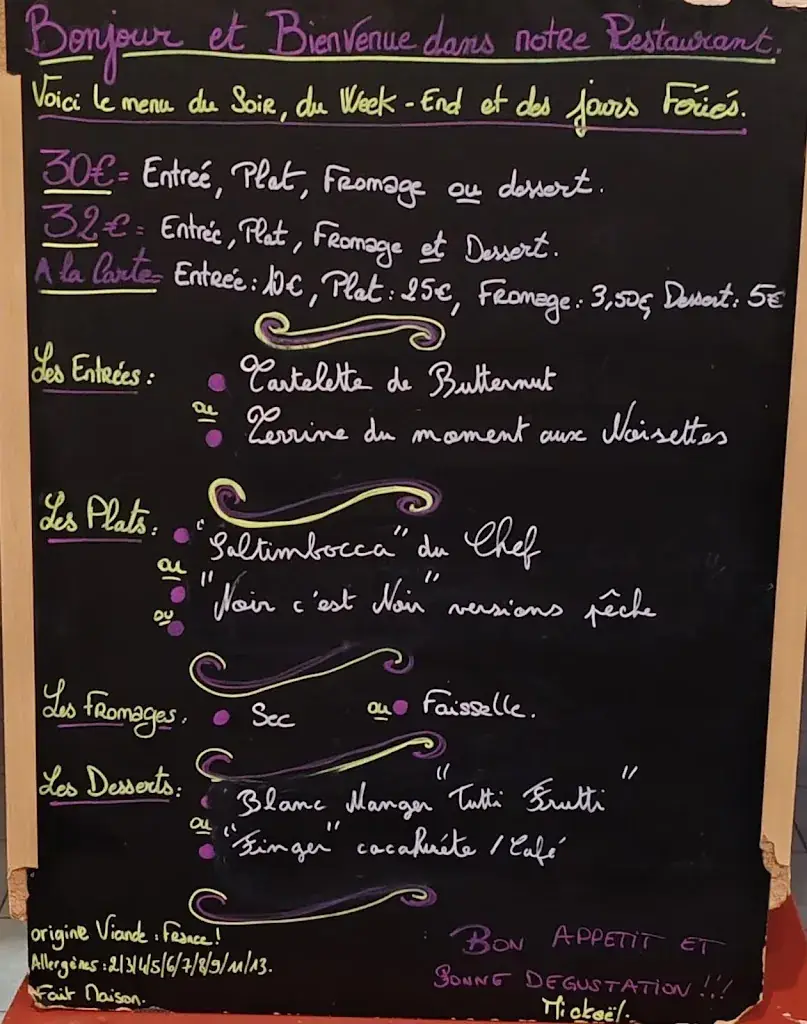 Bonjour et Bienvenue dans notre Restaurant.
Voici le menu du Soir, du Week-End et des jours Fériés.
30€= Entreé, Plat, Fromage ou dessert.
32€= Entrée, Plat, Fromage et Dessert.
A la Carte= Entrée: 10€, Plat: 25€, Fromage: 3,50€ Dessert: 5€
Les Entrées:
• Tartelette de Butternut
ou
• Terrine du moment aux Noisettes
Les Plats:
• "Saltimbocca" du Chef
ou
• "Noir c'est Noir" versions pêche
ou •
Les Fromages. • Sec ou • Faisselle.
Les Desserts:
• Blanc Manger "Tutti Frutti"
ou
• "Finger" cacahuéte / Café
origine Viande: France!
Allergènes: 2/3/4/5/6/7/8/9/11/13.
Fait Maison.
BON APPETIT ET
BONNE DEGUSTATION!!!
Mickaël.